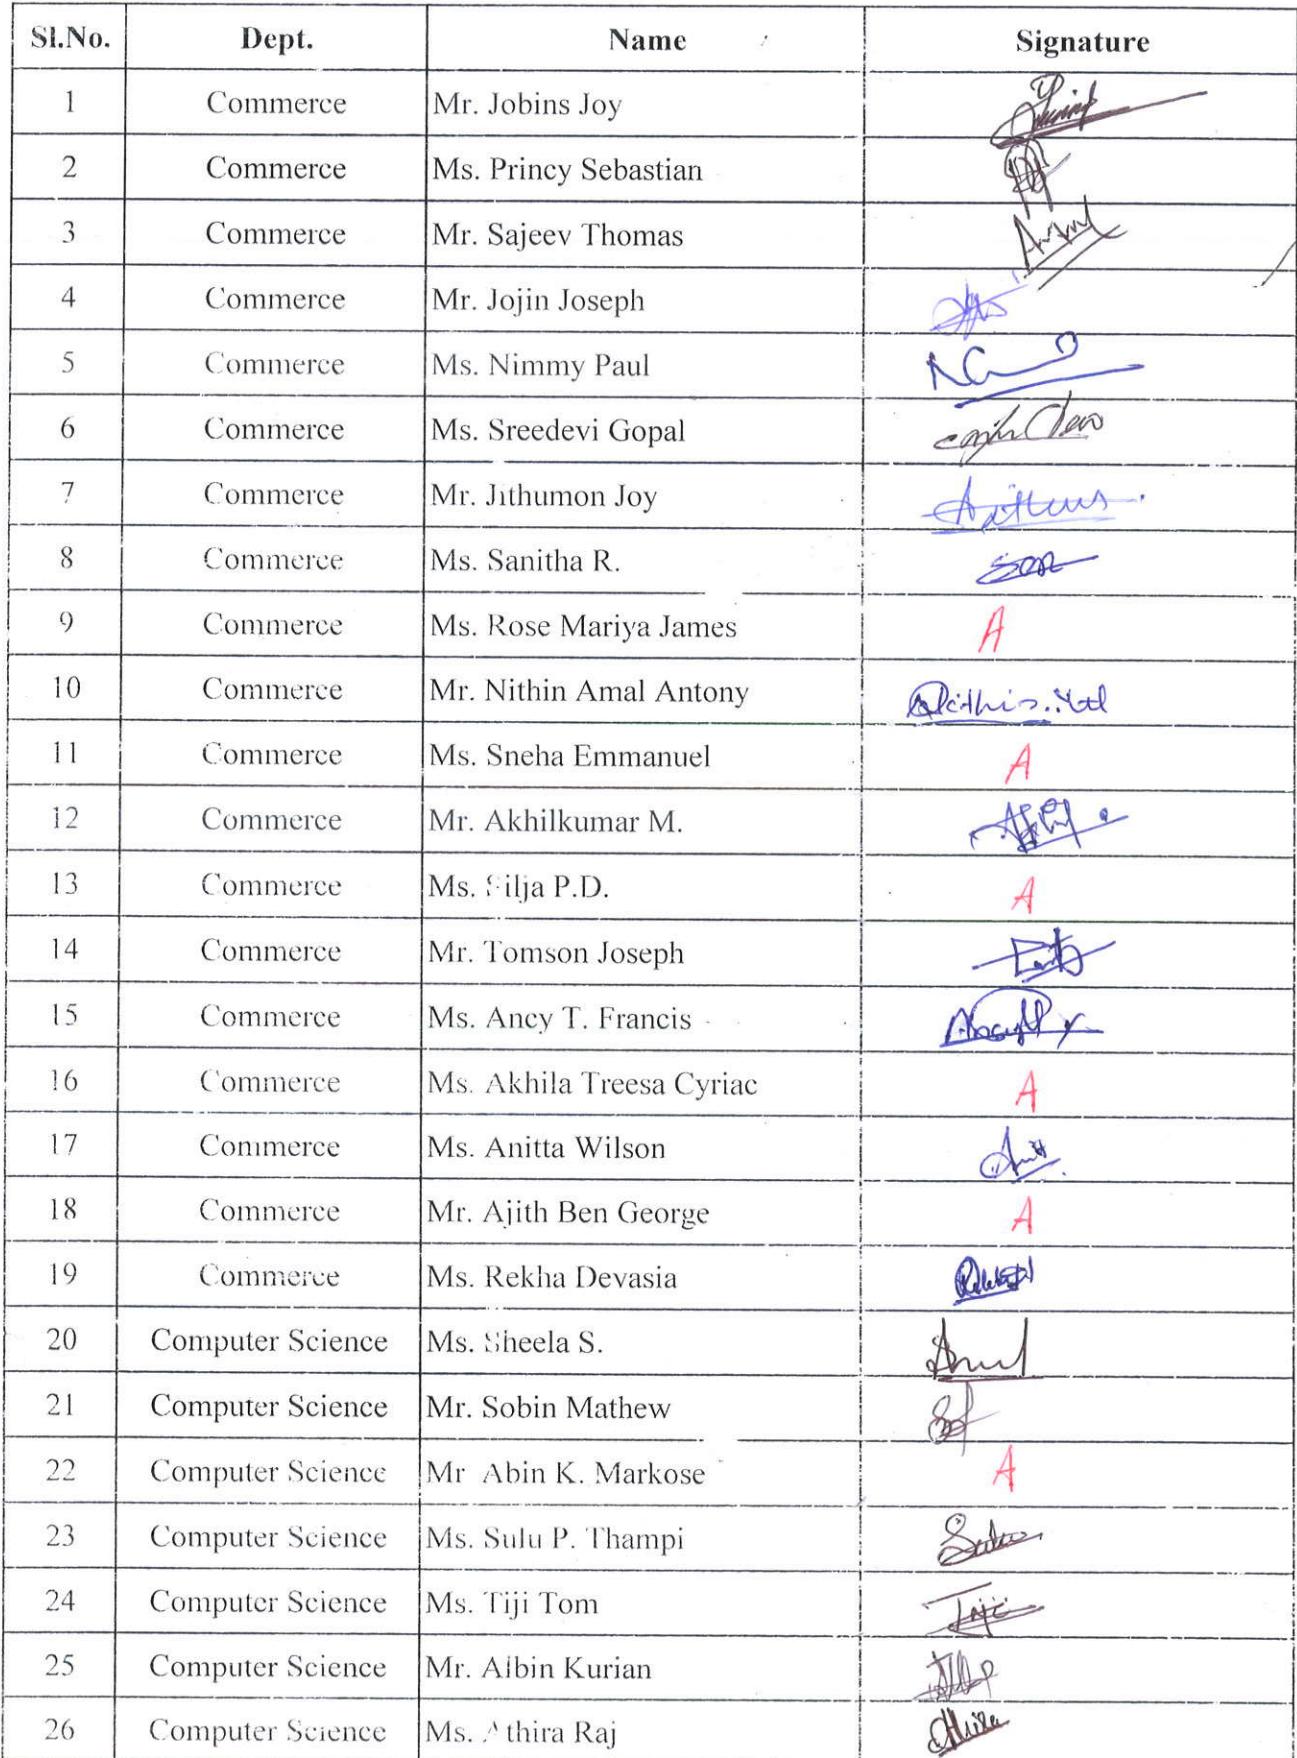 Sl.No. Dept. Name Signature
1 Commerce Mr. Jobins Joy
2 Commerce Ms. Princy Sebastian
3 Commerce Mr. Sajeev Thomas
4 Commerce Mr. Jojin Joseph
5 Commerce Ms. Nimmy Paul
6 Commerce Ms. Sreedevi Gopal
7 Commerce Mr. Jithumon Joy
8 Commerce Ms. Sanitha R.
9 Commerce Ms. Rose Mariya James A
10 Commerce Mr. Nithin Amal Antony
11 Commerce Ms. Sneha Emmanuel A
12 Commerce Mr. Akhilkumar M.
13 Commerce Ms. Silja P.D. A
14 Commerce Mr. Tomson Joseph
15 Commerce Ms. Ancy T. Francis
16 Commerce Ms. Akhila Treesa Cyriac A
17 Commerce Ms. Anitta Wilson
18 Commerce Mr. Ajith Ben George A
19 Commerce Ms. Rekha Devasia
20 Computer Science Ms. Sheela S.
21 Computer Science Mr. Sobin Mathew
22 Computer Science Mr Abin K. Markose A
23 Computer Science Ms. Sulu P. Thampi
24 Computer Science Ms. Tiji Tom
25 Computer Science Mr. Albin Kurian
26 Computer Science Ms. Athira Raj